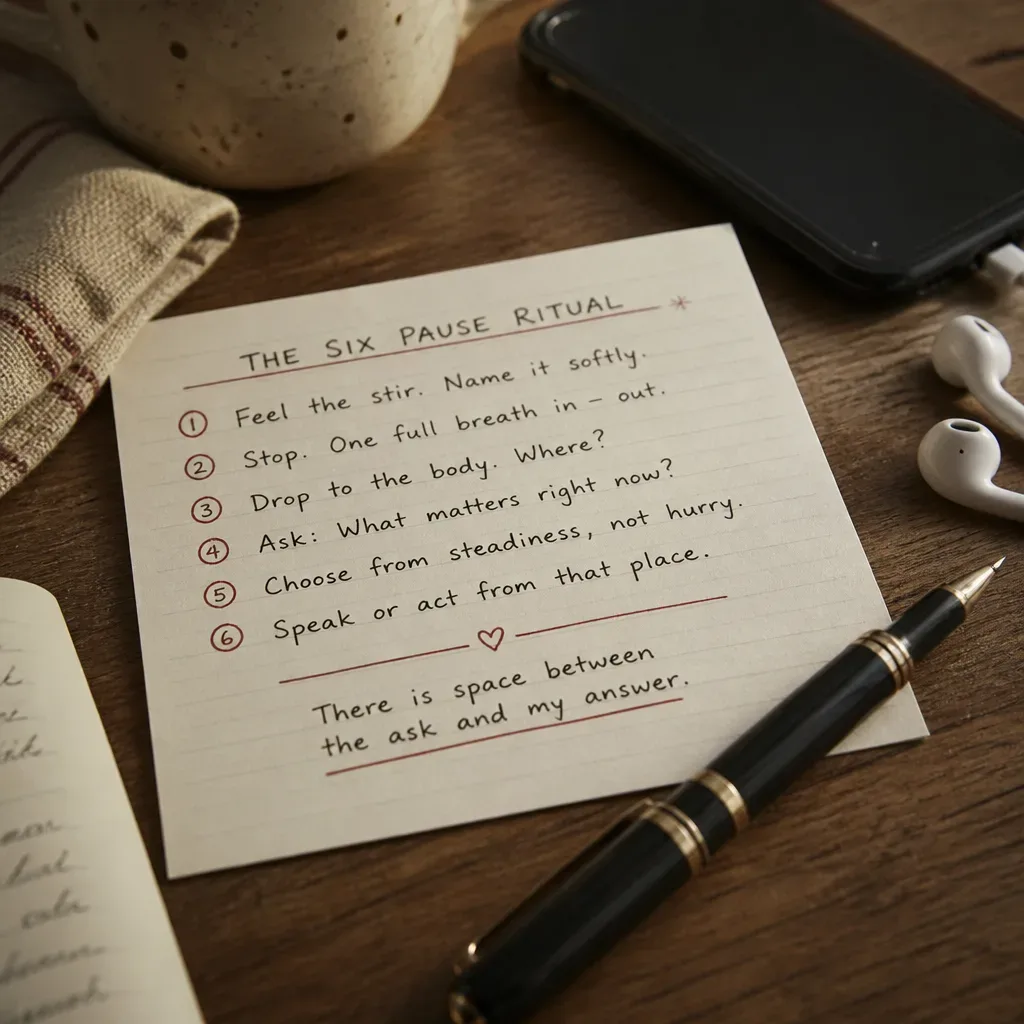 THE SIX PAUSE RITUAL *
① Feel the stir. Name it softly.
② Stop. One full breath in – out.
③ Drop to the body. Where?
④ Ask: What matters right now?
⑤ Choose from steadiness, not hurry.
⑥ Speak or act from that place.
There is space between
the ask and my answer.